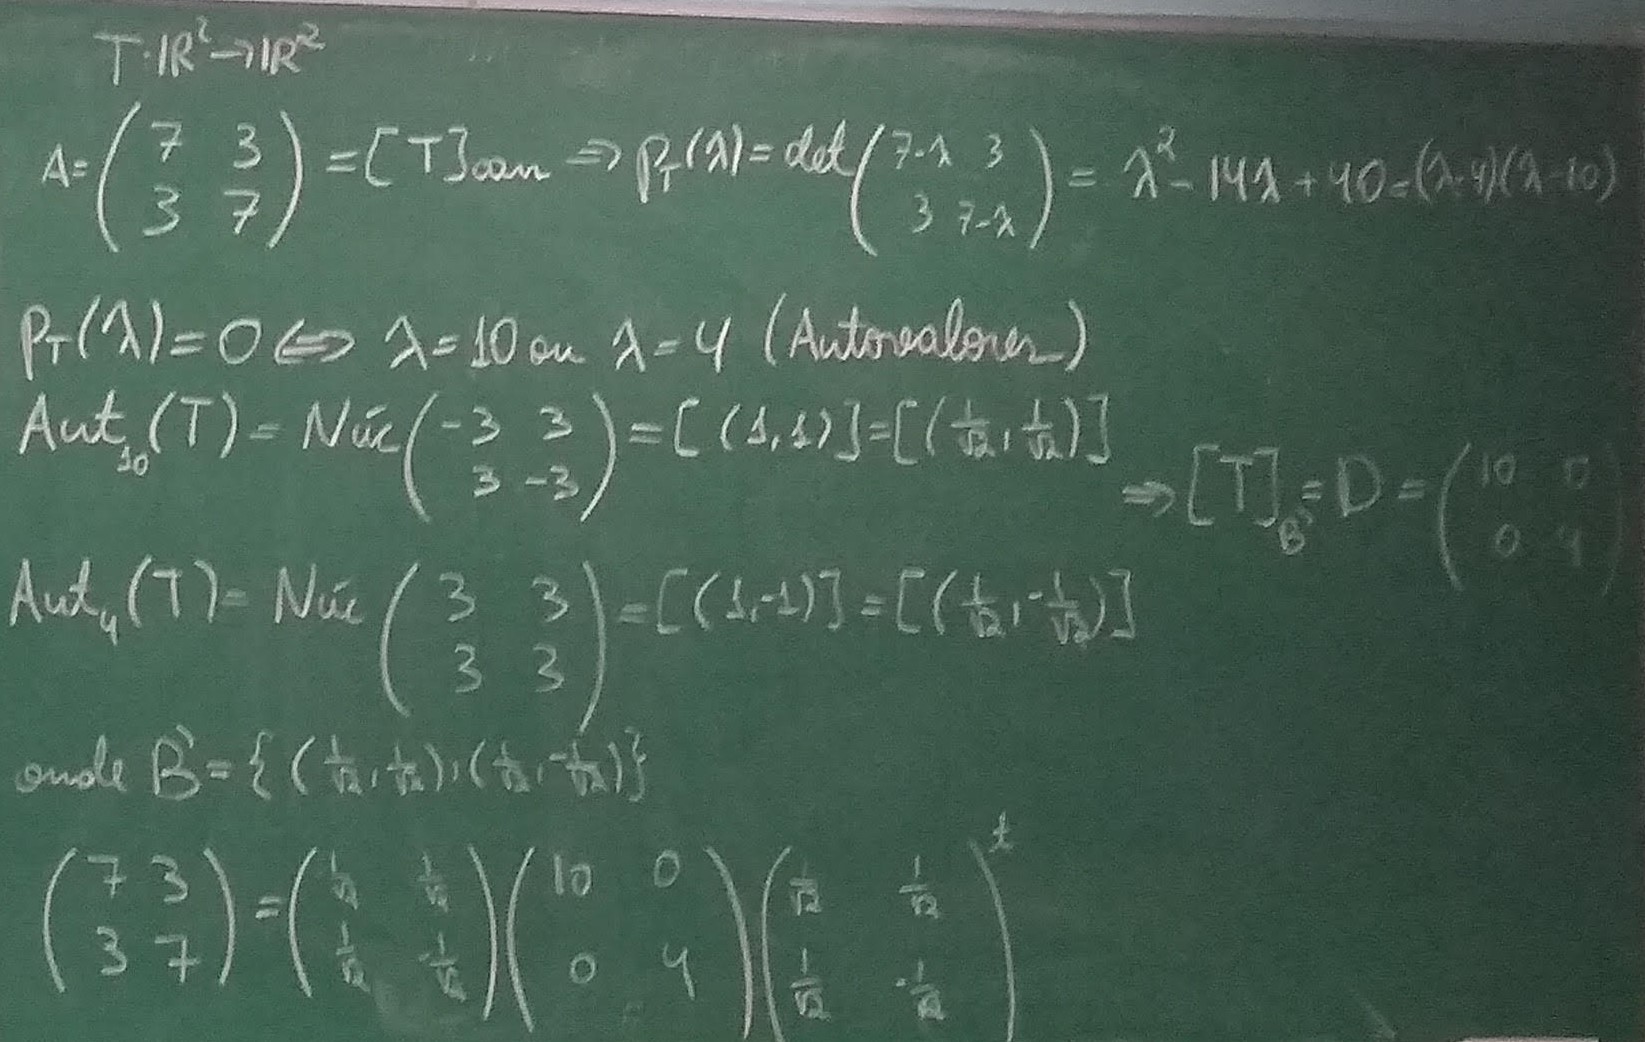 T:ℝ²→ℝ²
A = (7 3; 3 7) = [T]can ⇒ p_T(λ) = det(7-λ 3; 3 7-λ) = λ² - 14λ + 40 = (λ-4)(λ-10)
p_T(λ) = 0 ⇔ λ = 10 ou λ = 4 (Autovalores)
Aut₁₀(T) = Núc(-3 3; 3 -3) = [(1,1)] = [(1/√2, 1/√2)]
⇒ [T]_B' = D = (10 0; 0 4)
Aut₄(T) = Núc(3 3; 3 3) = [(1,-1)] = [(1/√2, -1/√2)]
onde B' = {(1/√2, 1/√2), (1/√2, -1/√2)}
(7 3; 3 7) = (1/√2 1/√2; 1/√2 -1/√2)(10 0; 0 4)(1/√2 1/√2; 1/√2 -1/√2)^t